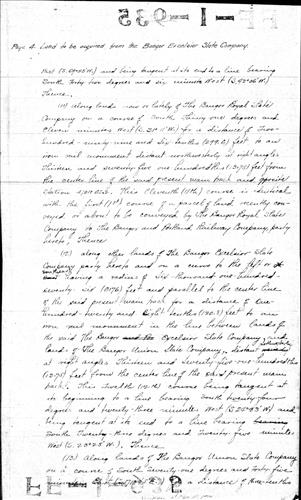 Page 4. Land to be acquired from the Bangor Excelsior Slate Company.
West and being tangent at its end to a line bearing
South forty two degrees and six minutes West
Thence,
(11) along lands now or lately of The Bangor Royal Slate
Company on a course of South thirty one degrees and
Eleven minutes West (S. 31° 11' W.) for a distance of Two
hundred ninety nine and six tenths (299.6) feet to an
iron rail monument distant northwesterly at right angles
thirteen and seventy five one hundredths (13.75) feet from
the center line of the said present main track and opposite
Station. This Eleventh (11th) course is identical
with the first (1st) course of a parcel of land recently con-
veyed or about to be conveyed by the Bangor Royal Slate
Company to the Bangor and Portland Railway Company party
hereto, Thence
(12) along other lands of The Bangor Excelsior Slate
Company party hereto and on a curve to the
having a radius of Six thousand one hundred
seventy six (6176) feet and parallel to the center line
of the said present main track for a distance of One
hundred twenty and tenths feet to an
iron rail monument in the line between lands of
the said The Bangor Excelsior Slate Company and
lands of The Bangor Union Slate Company, distant
at right angles thirteen and seventy five one hundredths
(13.75) feet from the center line of the said present main
track. This twelfth (12th) course being tangent at
its beginning to a line bearing South twenty four
degrees and twenty three minutes West and
being tangent at its end to a line bearing
South twenty three degrees and twenty five minutes
West, Thence
(13) Along lands of The Bangor Union Slate Company
on a course of South seventy one degrees and forty five
a distance of